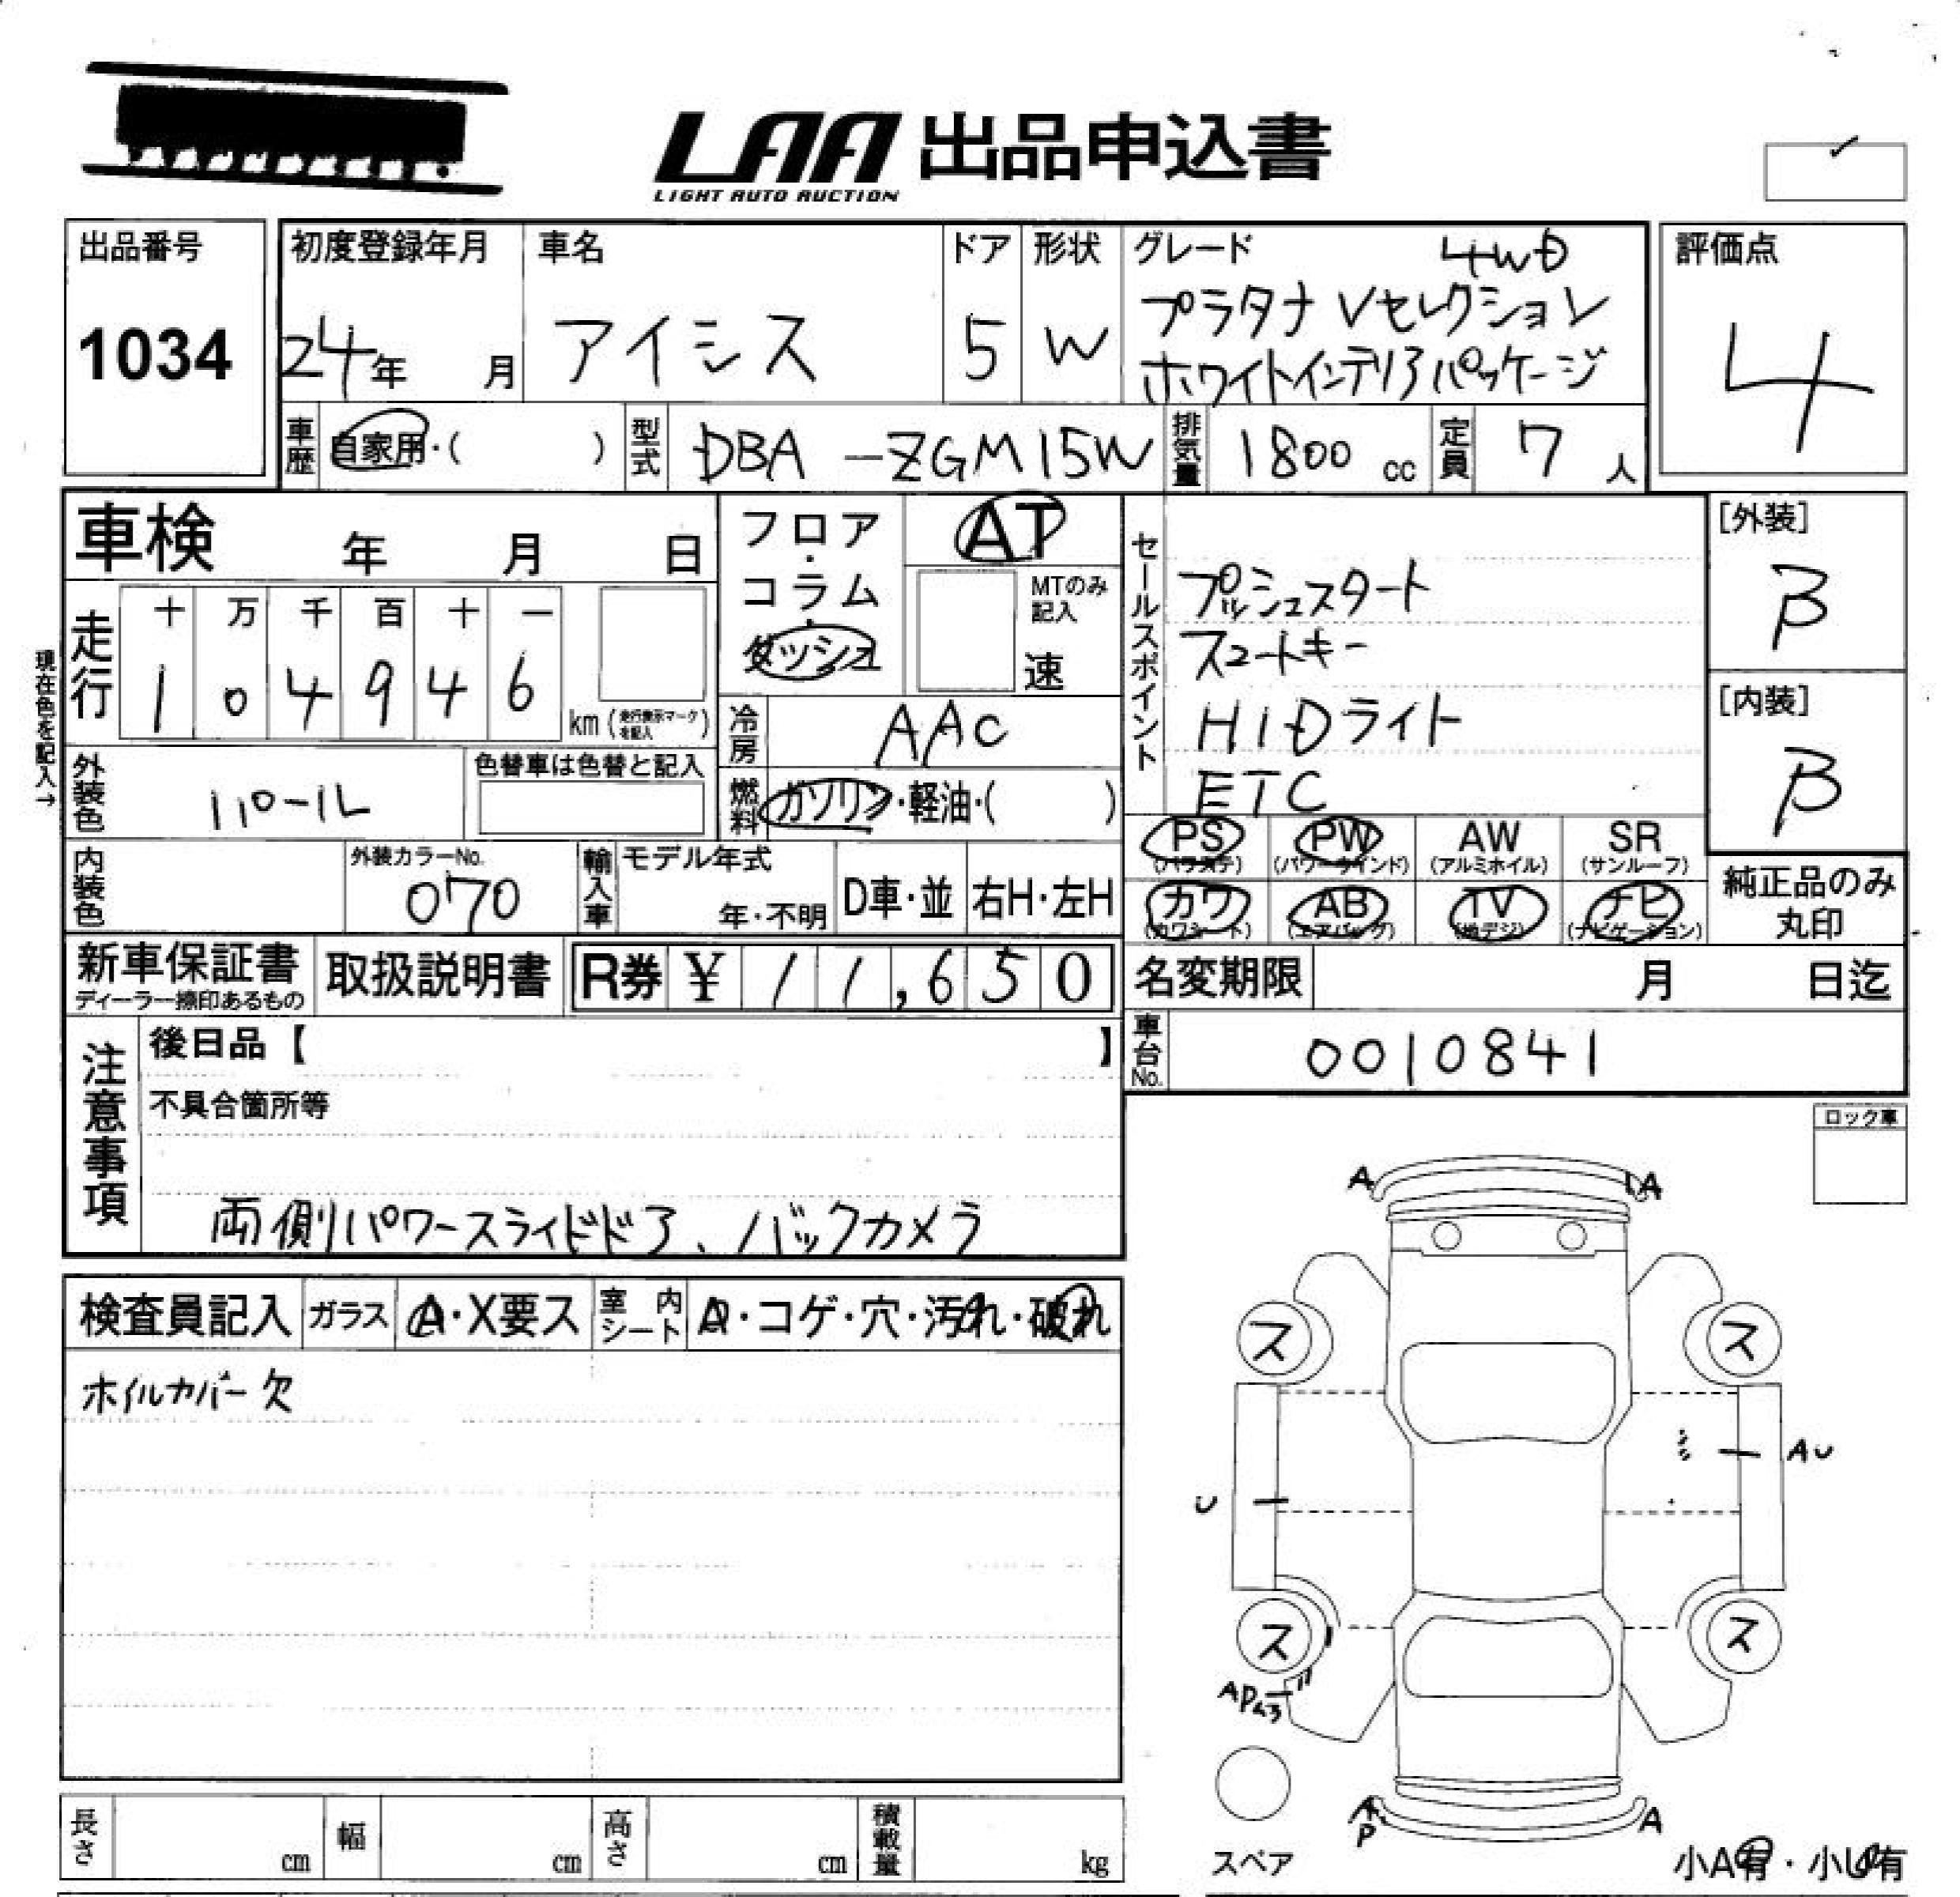 LAA 出品申込書
LIGHT AUTO AUCTION
出品番号
1034
初度登録年月
24年 月
車名
アイシス
ドア
5
形状
W
グレード
4WD
プラタナ Vセレクション
ホワイトインテリアパッケージ
評価点
4
車歴 自家用・( )
型式 DBA-ZGM15W
排気量 1800 cc
定員 7 人
車検 年 月 日
フロア・コラム・ダッシュ
AT
MTのみ記入
速
現在色を記入→
走行
十 万 千 百 十 一
1 0 4 9 4 6
km (走行表示マークを記入)
冷房 AAC
燃料 ガソリン・軽油・( )
外装色 パール
色替車は色替と記入
内装色
外装カラーNo.
070
輸入車
モデル年式
年・不明
D車・並
右H・左H
セールスポイント
プッシュスタート
スマートキー
HIDライト
ETC
[外装]
B
[内装]
B
PS (パワステ)
PW (パワーウインド)
AW (アルミホイル)
SR (サンルーフ)
カワ (カワシート)
AB (エアバッグ)
TV (地デジ)
ナビ (ナビゲーション)
純正品のみ
丸印
新車保証書
ディーラー捺印あるもの
取扱説明書
R券 ¥ 11,650
名変期限 月 日迄
車台No. 0010841
注意事項
後日品【 】
不具合箇所等
両側パワースライドドア、バックカメラ
ロック車
検査員記入
ガラス A・X要ス
室内シート A・コゲ・穴・汚れ・破れ
ホイルカバー欠
A A
ス ス
AU
U
ス ス
AP
A A
P
スペア
小A有・小U有
長さ cm
幅 cm
高さ cm
積載量 kg